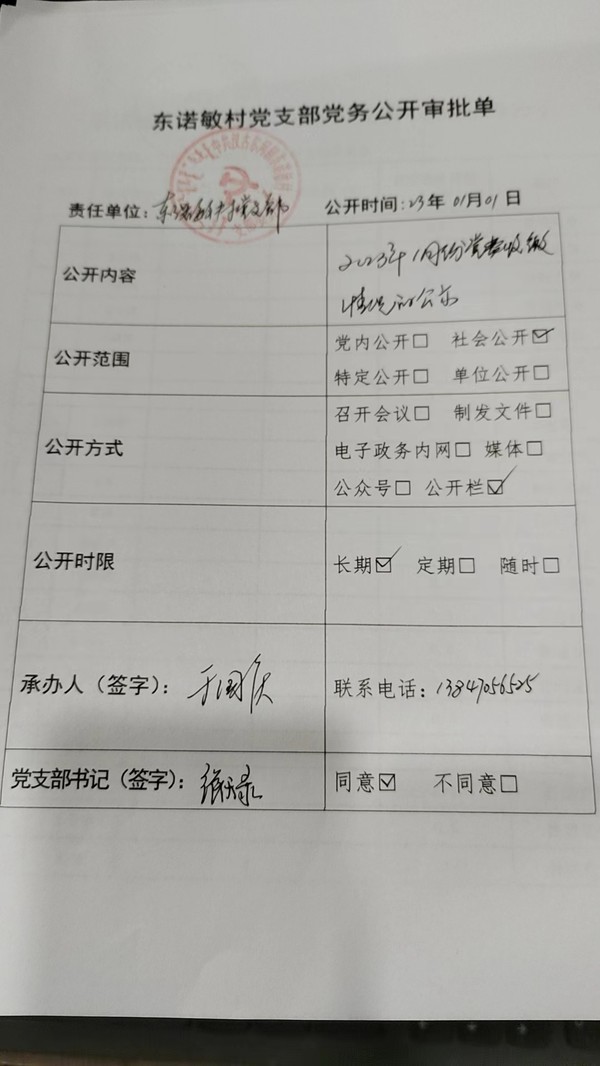 东诺敏村党支部党务公开审批单
责任单位：东诺敏村党支部 公开时间：23年01月01日
公开内容 2023年1月份党费收缴
情况的公示
公开范围 党内公开□ 社会公开☑
特定公开□ 单位公开□
公开方式 召开会议□ 制发文件□
电子政务内网□ 媒体□
公众号□ 公开栏☑
公开时限 长期☑ 定期□ 随时□
承办人（签字）： 联系电话：13847056525
党支部书记（签字）： 同意☑ 不同意□